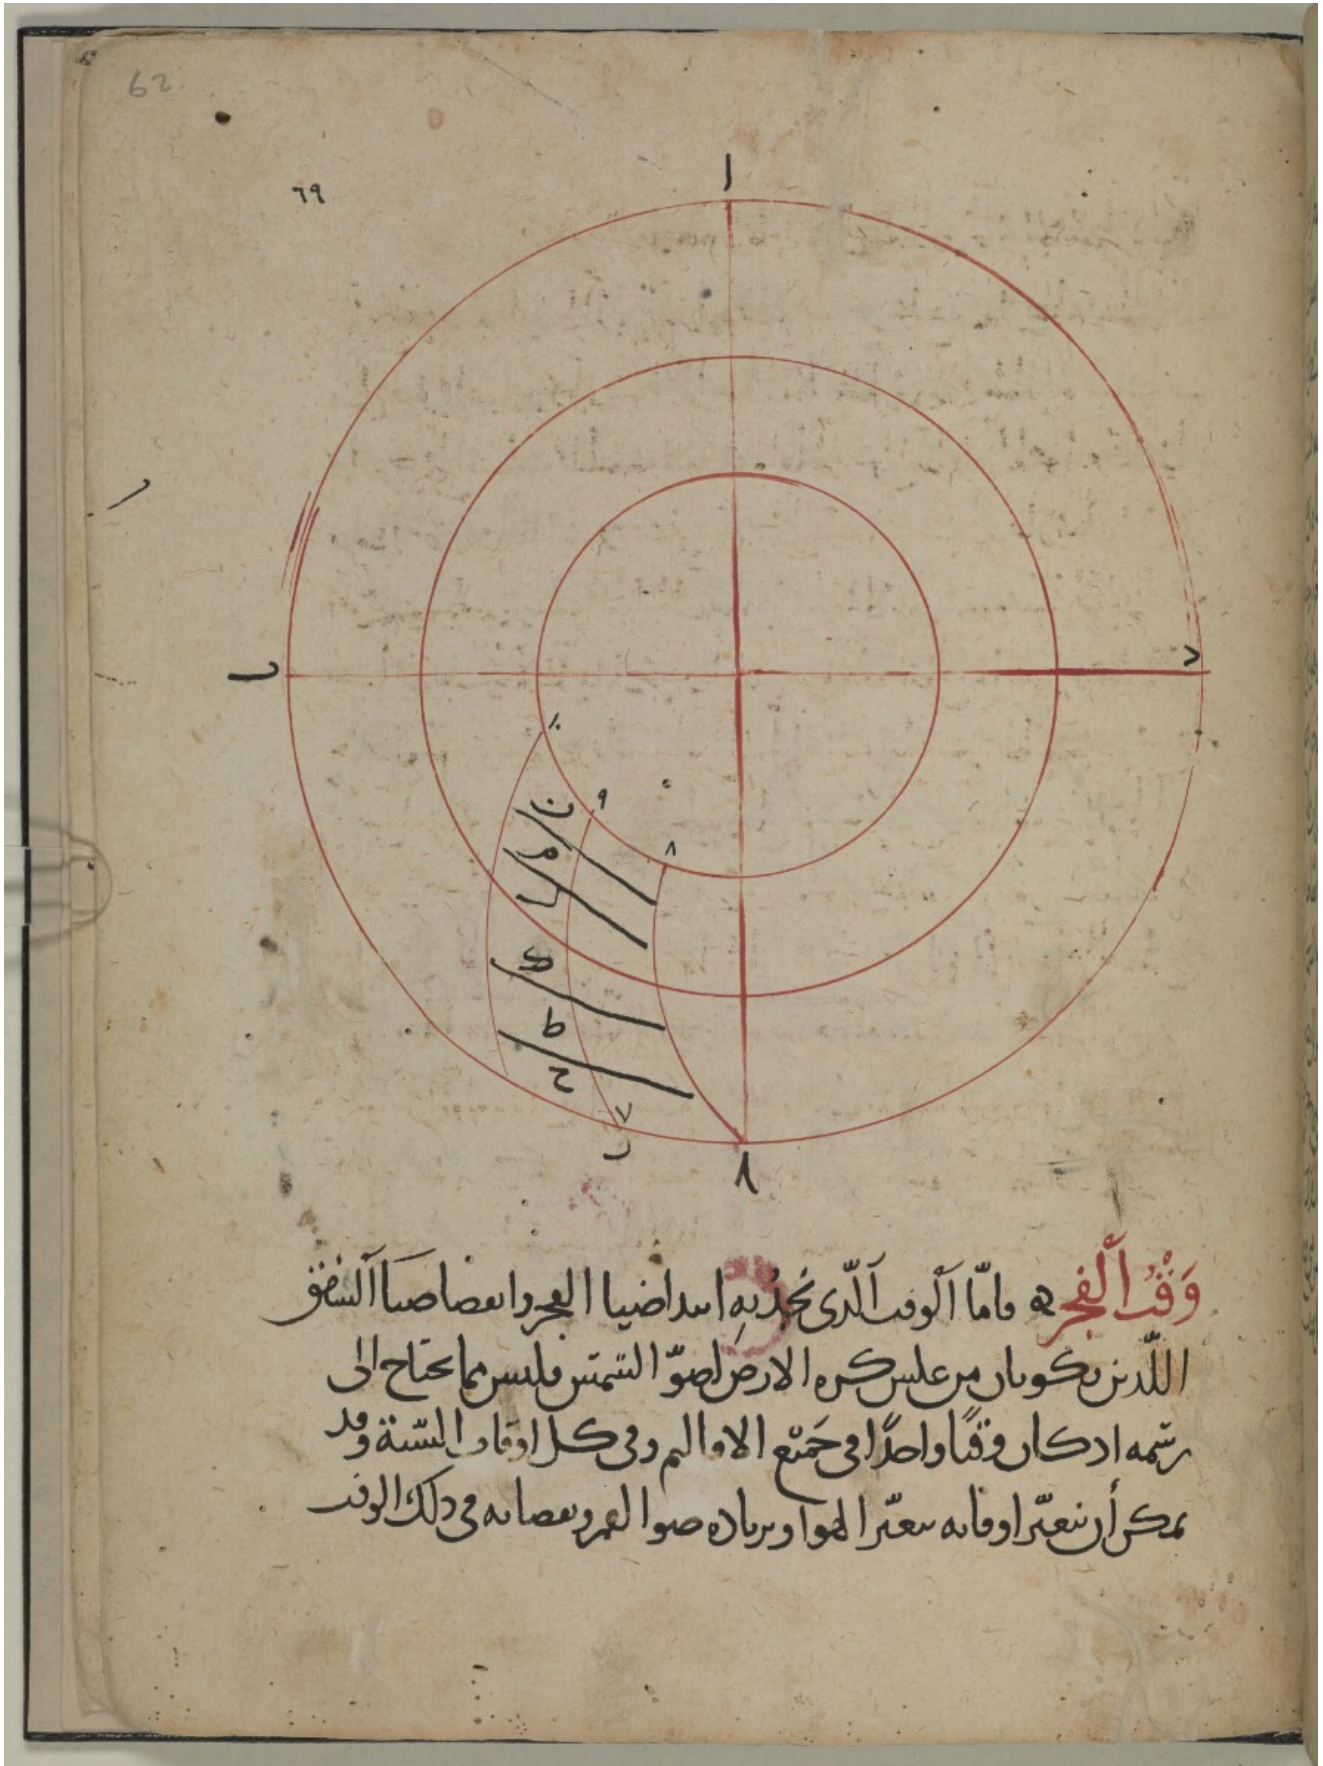 62
٦٩
ا
ب
د
١٠
٩
٨
ن
م
ل
ك
ط
ح
٧
ر
٨
وَقْتُ ٱلْفَجرِ فامّا ٱلْوقت ٱلّذى نحُدُّبهِ ابتدا ضيا الفجر وانقضا ضيا ٱلشفق
اللّذين يكونان من عكس كره الارض لضوّ الشمس فليس مما يحتاج الى
رسمه اذ كان وقتًا واحدًا فى جَميْع الاقاليم وفى كل اوقات السّنة وقد
يمكن أن تتغيّر اوقاته بتغيّر الهوا وبزياده ضوا القمر ونقصانه فى ذلك الوقت